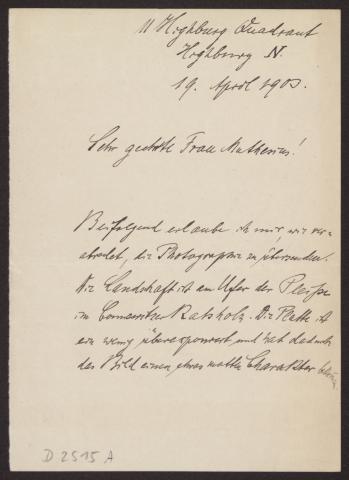 11 Highbury Quadrant
Highbury N.
19. April 1903.
Sehr geehrte Frau Muthesius!
Beifolgend erlaube ich mir, wie ver-
abredet, die Photographie zu übersenden.
Die Landschaft ist am Ufer der Pleisse
im Connewitzer Ratsholz. Die Platte ist
ein wenig überexponiert und hat dadurch
das Bild einen etwas matten Charakter
D 2515 A